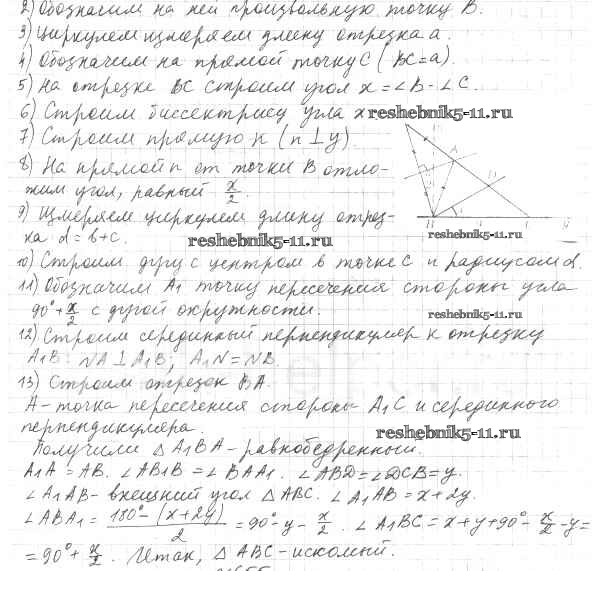 2) Обозначим на ней произвольную точку B.
3) Циркулем измеряем длину отрезка a.
4) Обозначим на прямой точку C (BC=a).
5) На отрезке BC строим угол x=∠B-∠C.
6) Строим биссектрису угла x
reshebnik5-11.ru
7) Строим прямую n (n⊥y).
8) На прямой n от точки B отло-
жим угол, равный x/2.
9) Измеряем циркулем длину отрез-
ка d=b+c.
reshebnik5-11.ru
reshebnik5-11.ru
A
D
B
10) Строим дугу с центром в точке C и радиусом d.
11) Обозначим A₁ точку пересечения стороны угла
90°+x/2 с дугой окружности.
reshebnik5-11.ru
12) Строим серединный перпендикуляр к отрезку
A₁B: NA⊥A₁B; A₁N=NB.
13) Строим отрезок BA.
A-точка пересечения стороны A₁C и серединного
перпендикуляра.
reshebnik5-11.ru
Получили △A₁BA-равнобедренный.
A₁A=AB. ∠AB₁B=∠BAA₁. ∠ABD=∠DCB=y.
∠A₁AB-внешний угол △ABC. ∠A₁AB=x+2y.
∠ABA₁=180°-(x+2y)/2=90°-y-x/2. ∠A₁BC=x+y+90°-x/2-y=
=90°+x/2. Итак, △ABC-искомый.